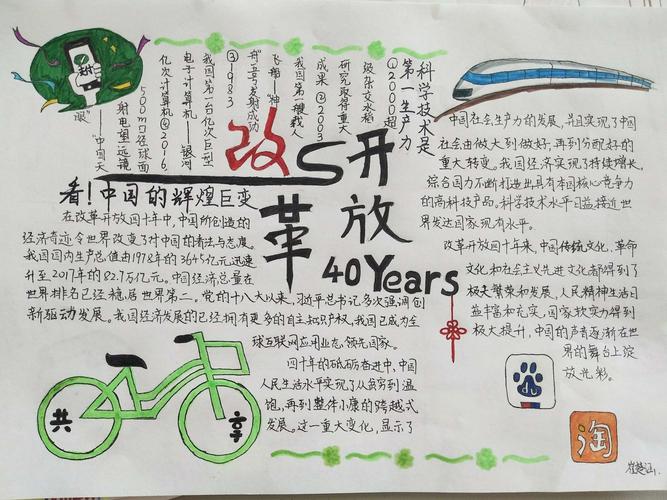 科学技术是
第一生产力
①2000超
级杂交水稻
研究取得重大
成果②2003
我国第一艘载人
飞船“神
舟”五号发射成功
③1983
我国第一台亿次巨型
电子计算机——银河
亿次计算机④2016
500m口径球面
射电望远镜
——“中国天
眼”
支付
改革开放
40Years
看!中国的辉煌巨变
在改革开放四十年中,中国所创造的
经济奇迹令世界改变了对中国的看法与态度。
我国国内生产总值由1978年的3645亿元迅速
升至2017年的82.7万亿元。中国经济总量在
世界排名已经稳居世界第二。党的十八大以来,习近平总书记多次强调创
新驱动发展。我国经济发展的已经拥有更多的自主知识产权,我国已成为全
球互联网应用业态领先国家。
四十年的砥砺奋进中,中国
人民生活水平实现了从贫穷到温
饱,再到整体小康的跨越式
发展。这一重大变化,显示了
中国社会生产力的发展,并且实现了中国
社会由做大到做好,再到分配好的
重大转变。我国经济实现了持续增长,
综合国力不断打造出具有本国核心竞争力
的高科技产品。科学技术水平日益接近世
界发达国家现有水平。
改革开放四十年来,中国传统文化、革命
文化和社会主义先进文化都得到了
极大繁荣和发展,人民精神生活日
益丰富和充实。国家软实力得到
极大提升,中国的声音逐渐在世
界的舞台上绽
放光彩。
共享
du
淘